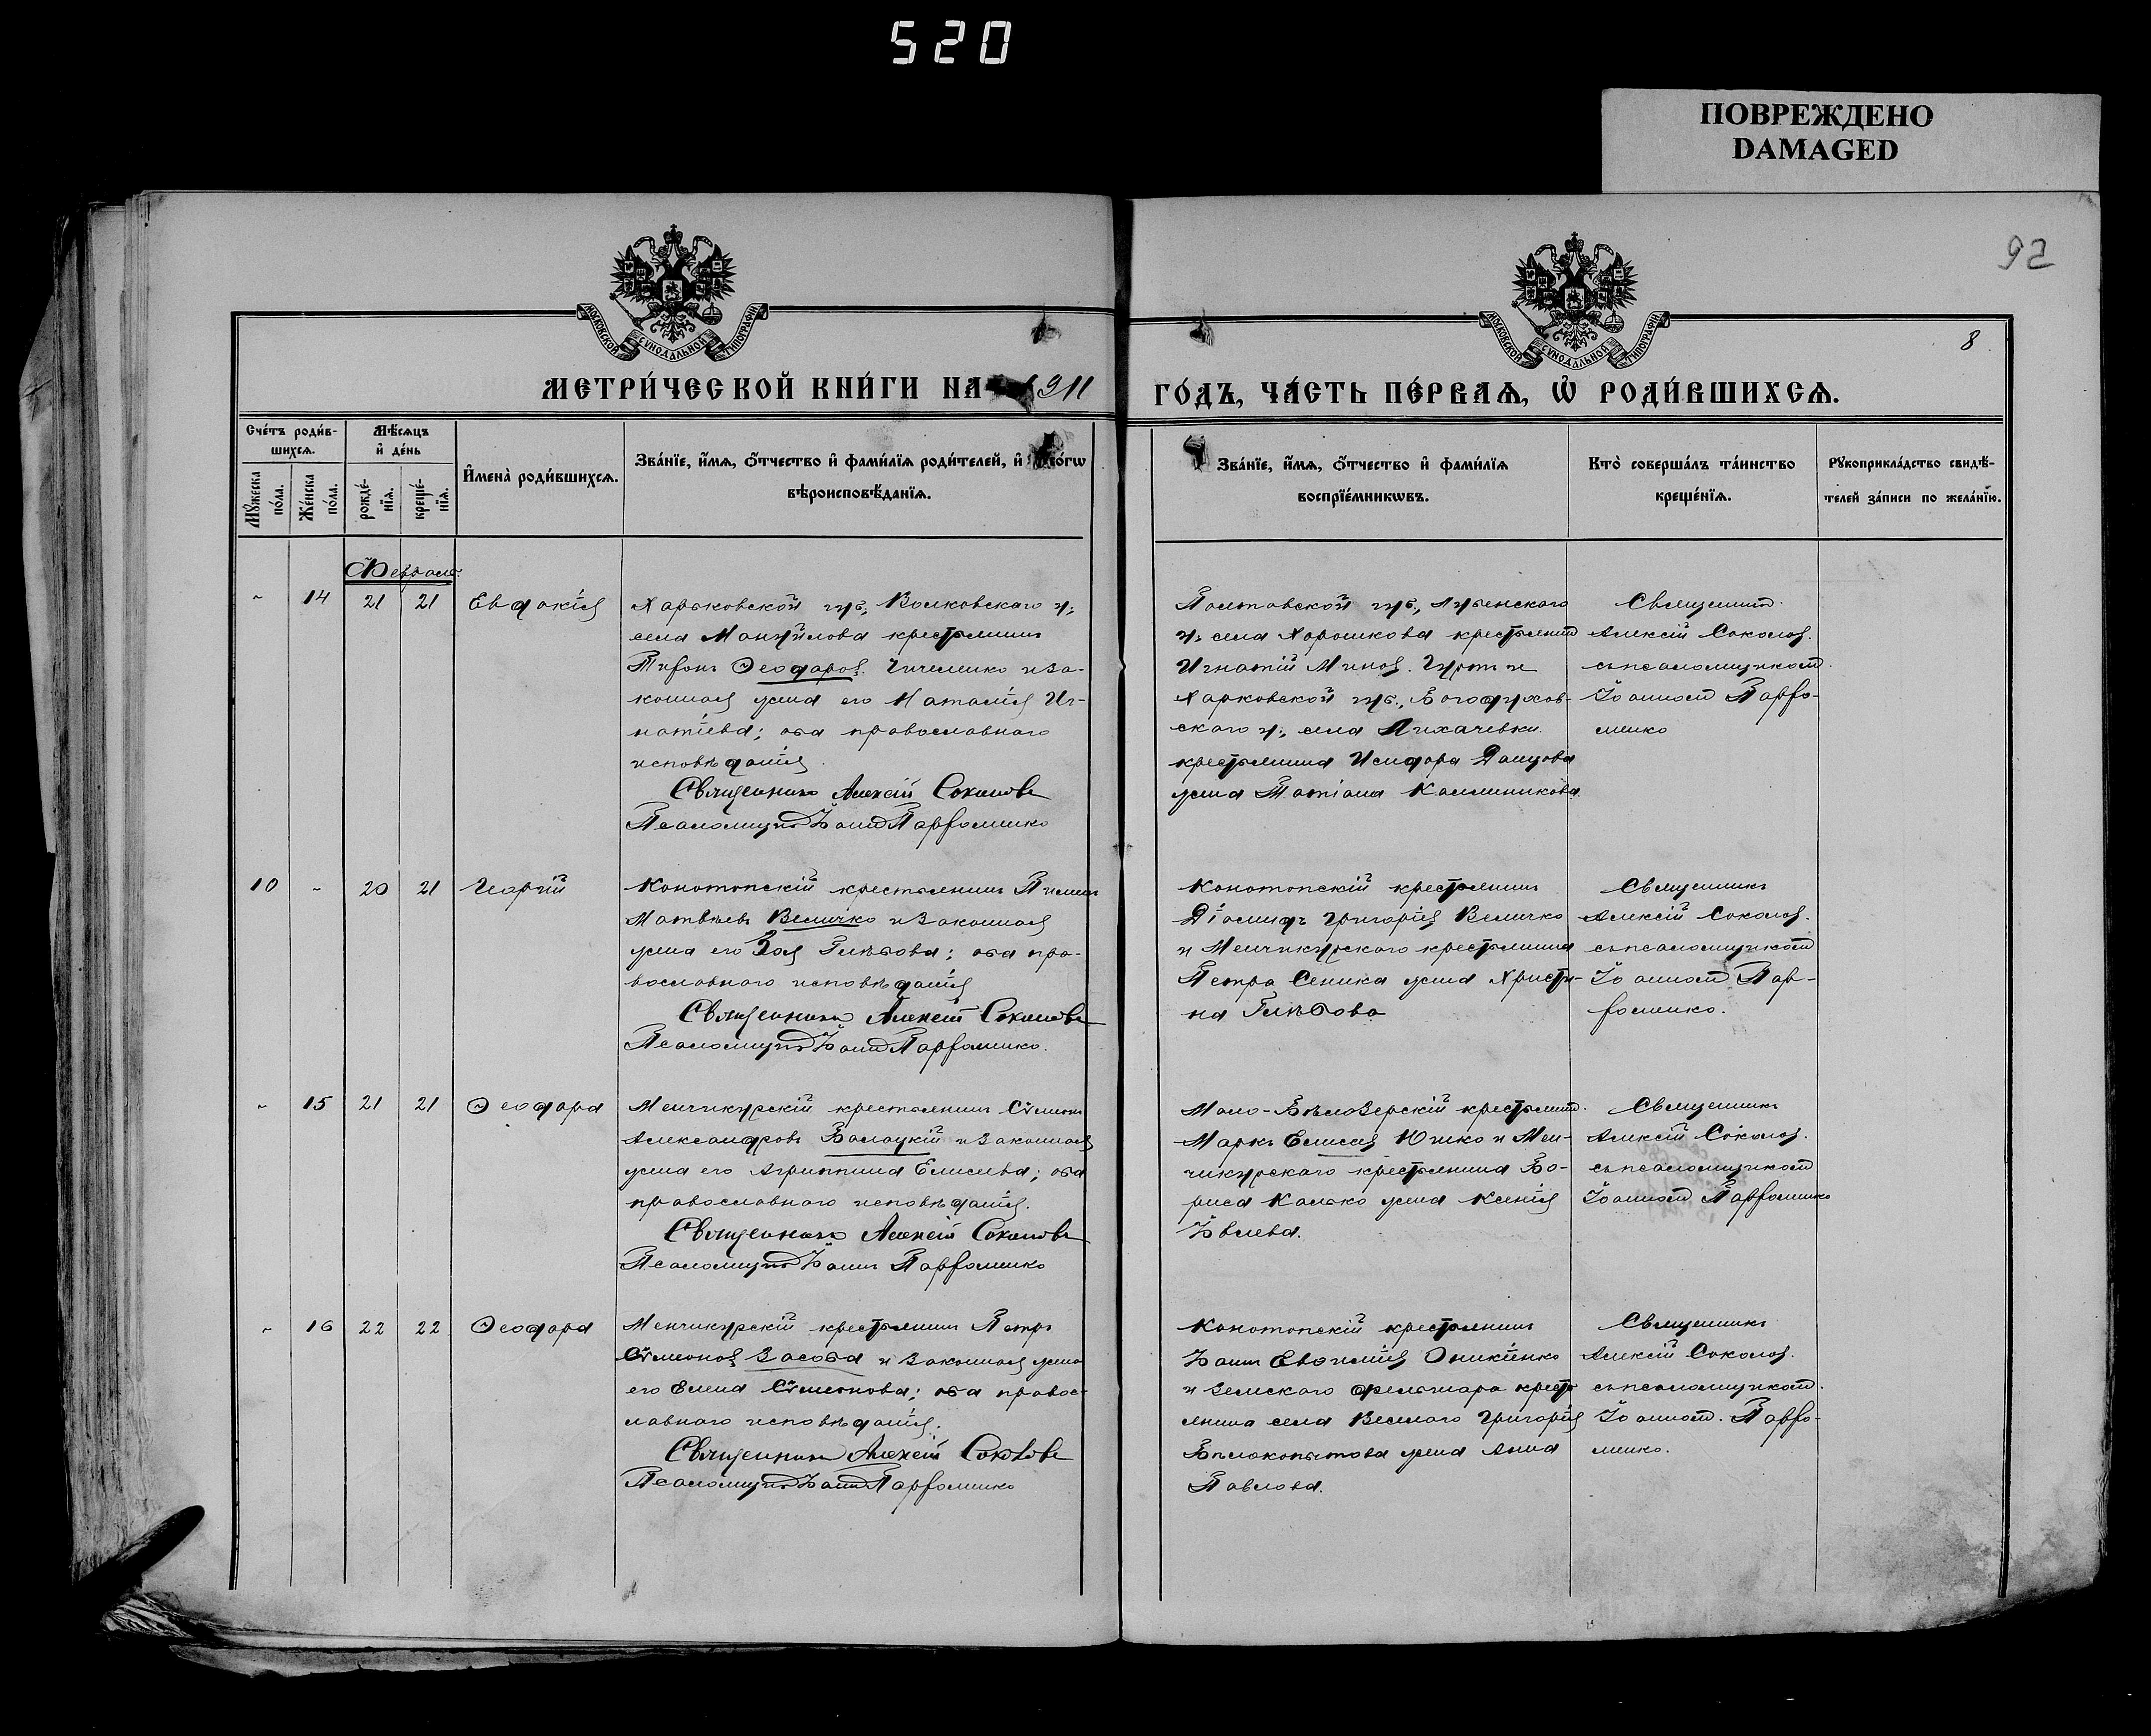 520
ПОВРЕЖДЕНО
DAMAGED
92
8
МОСКОВСКОЙ СѴНОДАЛЬНОЙ ТИПОГРАФІИ
МОСКОВСКОЙ СѴНОДАЛЬНОЙ ТИПОГРАФІИ
МЕТРИ́ЧЕСКОЙ КНИ́ГИ НА 1911
ГО́ДЪ, ЧА́СТЬ ПЕ́РВАѦ, Ѡ҆ РОДИ́ВШИХСѦ.
Сче́тъ роди́в-
шихсѧ.
Мꙋ́жеска по́ла.
Же́нска по́ла.
Мѣ́сѧцъ
и҆ де́нь
рожде́-
нїѧ.
креще́-
нїѧ.
И҆мена̀ роди́вшихсѧ.
Зва́нїе, и҆́мѧ, ѻ҆́тчество и҆ фами́лїѧ роди́телей, и҆
вѣроисповѣ́данїѧ.
Зва́нїе, и҆́мѧ, ѻ҆́тчество и҆ фами́лїѧ
воспрїе́мникѡвъ.
Кто̀ соверша́лъ та́инство
креще́нїѧ.
Рꙋкоприкла́дство свидѣ́-
телей за́писи по жела́нїю.
Февраль
- 14 21 21 Евдокія
Харьковской губ., Волковскаго у.,
села Мануйлова крестьянинъ
Тифонъ Ѳеодоровъ Чичелико и за-
конная жена его Наталія Иг-
натіева; оба православнаго
исповѣданія.
Священникъ Алексій Соколовъ
Псаломщикъ Іоаннъ Парфоменко
Полтавской губ., Лубенскаго
у. села Хорошкова крестьянинъ
Игнатій Миновъ и
Харковской губ., Богодухов-
скаго у., села Лихачевки
крестьянина Исидора Данцова
жена Татіана Каленникова
Священникъ
Алексій Соколовъ
съ псаломщикомъ
Іоанномъ Парфо-
менко
10 - 20 21 Георгій
Конотопскій крестьянинъ Пименъ
Матвѣевъ Величко и законная
жена его Зоя Глѣбова; оба пра-
вославнаго исповѣданія
Священникъ Алексій Соколовъ
Псаломщикъ Іоаннъ Парфоменко.
Конотопскій крестьянинъ
Діомидъ Григоріевъ Величко
и Менчикурскаго крестьянина
Петра Сеника жена Христи-
на Глѣбова
Священникъ
Алексій Соколовъ
съ псаломщикомъ
Іоанномъ Пар-
фоменко.
- 15 21 21 Ѳеодора
Менчикурскій крестьянинъ Сѵмеонъ
Александровъ Балацкій и законная
жена его Агриппина Елисеева; оба
православнаго исповѣданія.
Священникъ Алексій Соколовъ
Псаломщикъ Іоаннъ Парфоменко
Мало-Бѣлозерскій крестьянинъ
Маркъ Елисеевъ Юшко и Мен-
чикурскаго крестьянина Бо-
риса Калько жена Ксенія
Іовлева.
Священникъ
Алексій Соколовъ
съ псаломщикомъ
Іоанномъ Парфоменко
- 16 22 22 Ѳеодора
Менчикурскій крестьянинъ Петръ
Сѵмеоновъ Засоба и законная жена
его Елена Сѵмеонова; оба правос-
лавнаго исповѣданія.
Священникъ Алексій Соколовъ
Псаломщикъ Іоаннъ Парфоменко
Конотопскій крестьянинъ
Іоаннъ Евѳиміевъ Оникіенко
и земскаго фельшара крестья-
янина села Веселаго Григорія
Бѣлокопытова жена Анна
Павлова.
Священникъ
Алексій Соколовъ
съ псаломщикомъ
Іоанномъ Парфо-
менко.